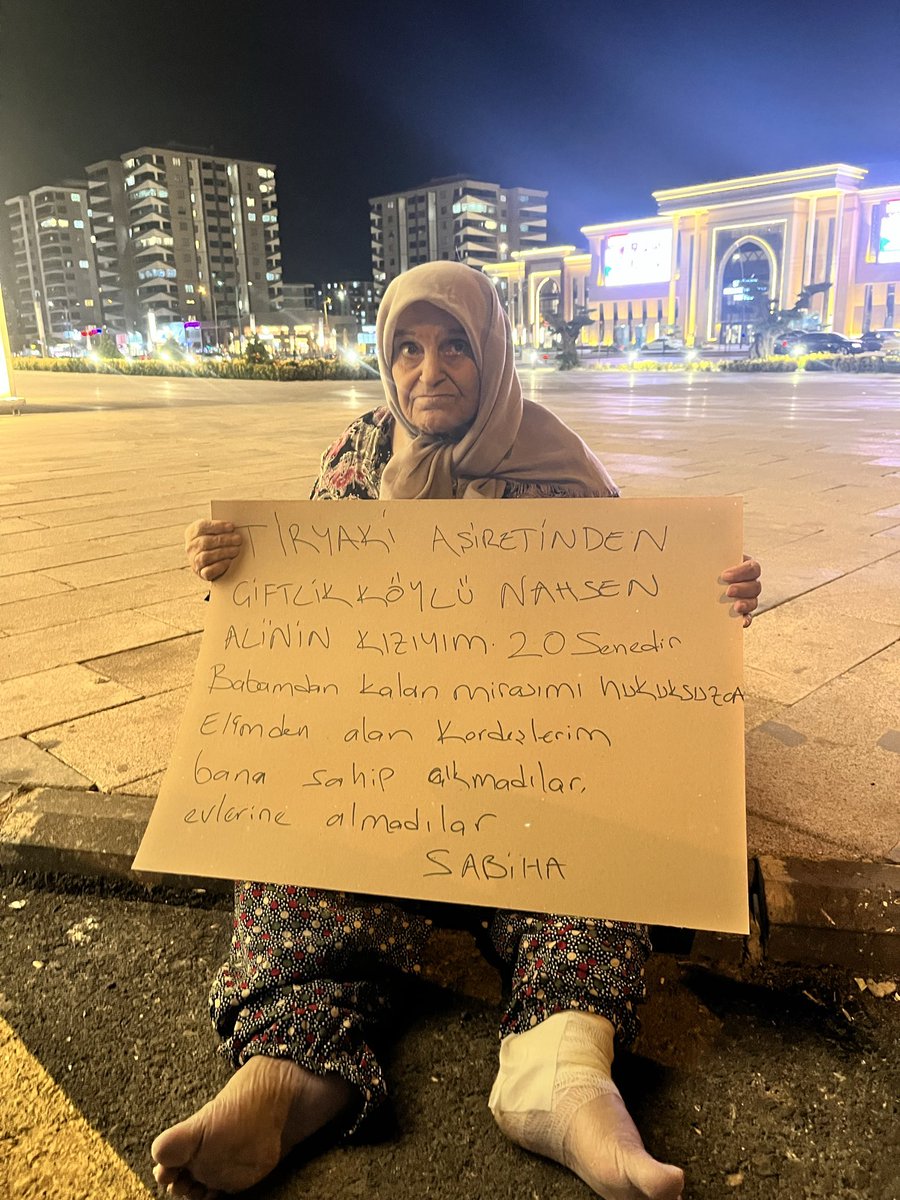 TİRYAKİ AŞİRETİNDEN
GİFTLİK KÖYLÜ NAHSEN
ALİ'NİN KIZIYIM. 20 Senedir
Babamdan kalan mirasımı hukuksuzca
Elimden alan Kardeşlerim
bana sahip çıkmadılar,
evlerine almadılar
SABİHA